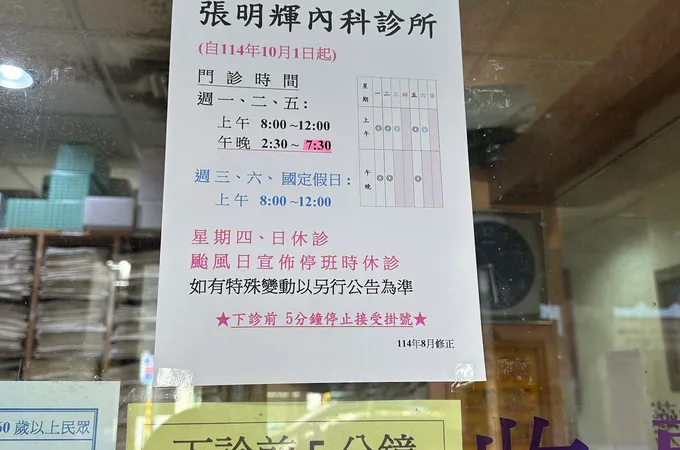 張明輝內科診所
(自114年10月1日起)
門診時間
週一、二、五：
上午 8:00~12:00
午晚 2:30~ 7:30
週三、六、國定假日：
上午 8:00~12:00
星期 一 二 三 四 五 六 日
上午 ◎ ◎ ◎ ◎ ◎
午晚 ◎ ◎ ◎
星期四、日休診
颱風日宣佈停班時休診
如有特殊變動以另行公告為準
★下診前 5分鐘停止接受掛號★
114年8月修正
60 歲以上民眾
下診前5分鐘
收